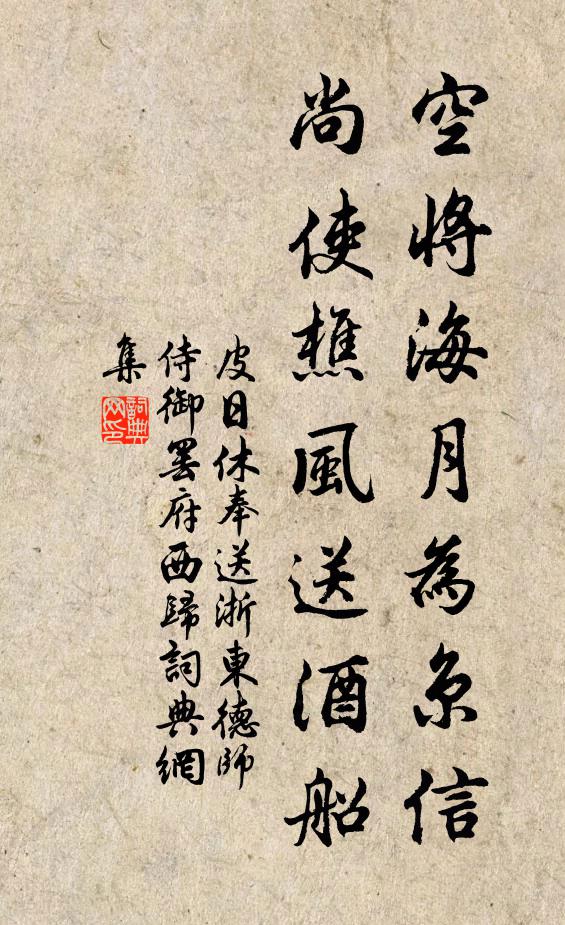 空將海月為京信
尚使樵風送酒船
皮日休奉送浙東德師
侍御罢府西歸詞典網
集
詞典
网印